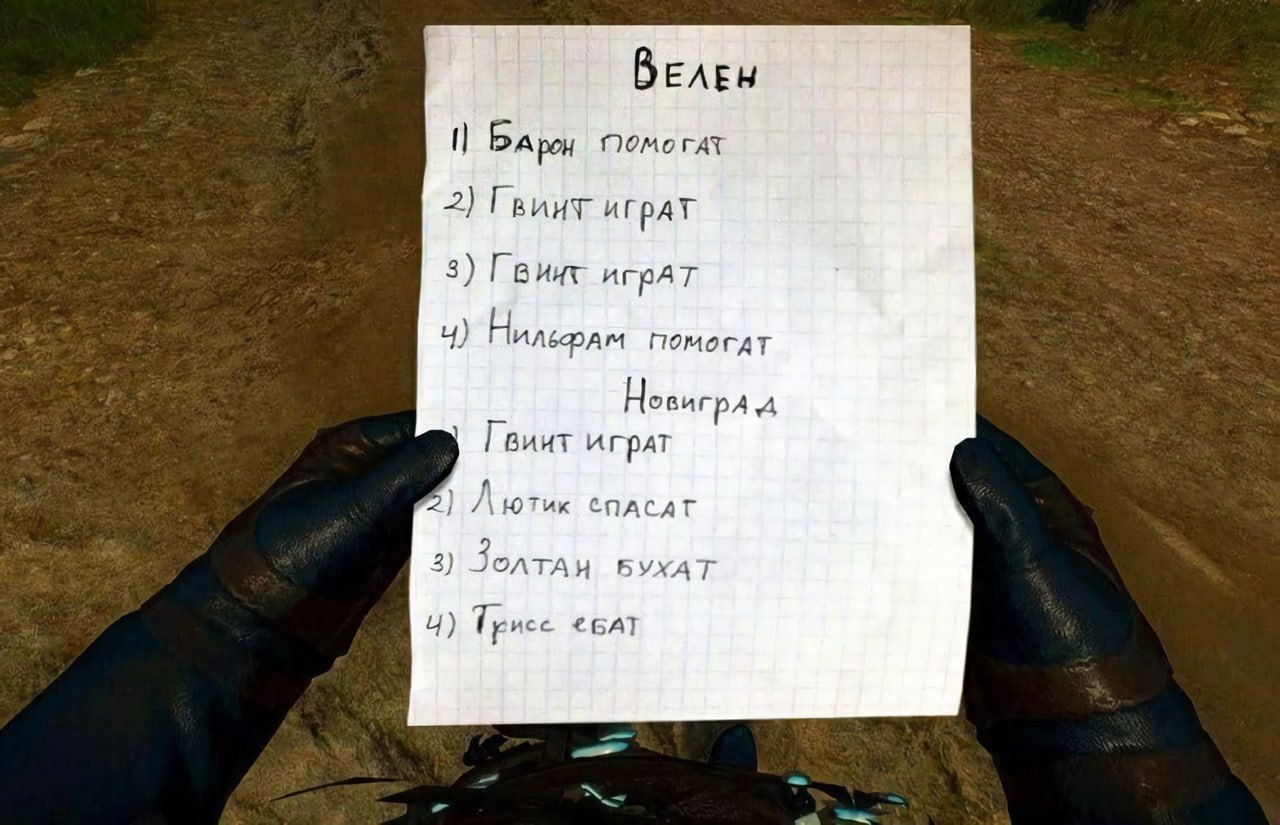 Велен
1) Барон помогат
2) Гвинт играт
3) Гвинт играт
4) Нильфам помогат
Новиград
) Гвинт играт
2) Лютик спасат
3) Золтан бухат
4) Трисс ебат